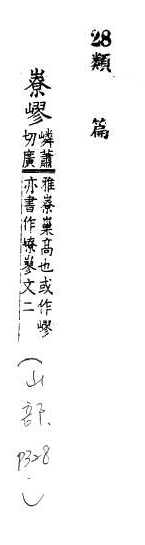 28類篇
嶚嵺憐蕭切廣雅嶚巢高也或作嵺亦書作㙩嵾文二
(山部. p328.)